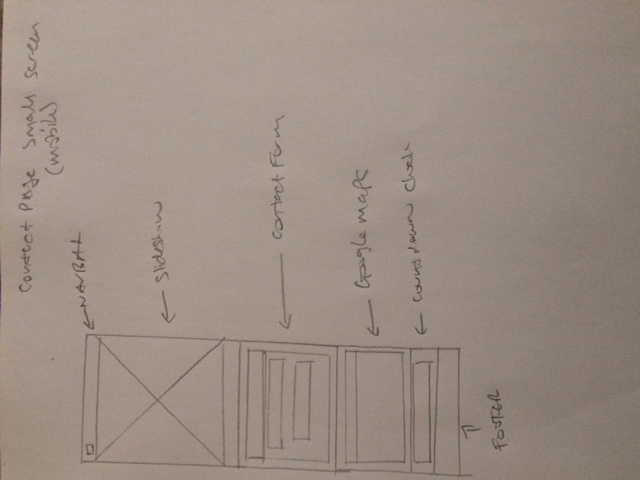 Contact Page Small Screen
(mobile)
NAVBAR
Slideshow
Contact Form
Google maps
Countdown Clock
FOOTER